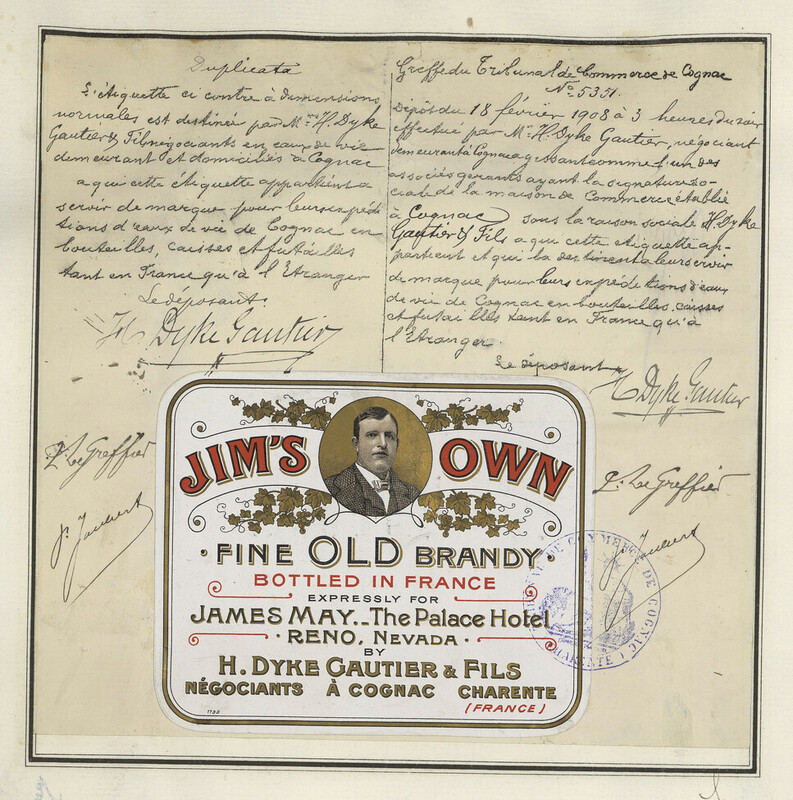 Duplicata
L'étiquette ci contre à dimensions
normales est destinée par Mrs H. Dyke
Gautier & Fils négociants en eaux de vie
demeurant et domiciliés à Cognac
a qui cette étiquette appartient a
servir de marque pour leurs expédi
tions d'eaux de vie de Cognac en
bouteilles, caisses et futailles
tant en France qu'à l'Etranger
Le déposant.
H Dyke Gautier
P. Le Greffier
J. Joubert
Greffe du Tribunal de Commerce de Cognac
No 5351.
Dépôt du 18 février 1908 à 3 heures du soir
effectué par Mr H. Dyke Gautier, négociant
demeurant à Cognac agissant comme l'un des
associés gérants ayant la signature so-
ciale de la maison de Commerce établie
à Cognac sous la raison sociale H. Dyke
Gautier & Fils a qui cette étiquette ap-
partient et qui la destinent a leur servir
de marque pour leurs expéditions d'eaux
de vie de Cognac en bouteilles, caisses
et futailles tant en France qu'à
l'Etranger.
Le déposant
H Dyke Gautier
P. Le Greffier
J. Joubert
JIM'S OWN
FINE OLD BRANDY
BOTTLED IN FRANCE
EXPRESSLY FOR
JAMES MAY._The Palace Hotel
RENO, NEVADA
BY
H. DYKE GAUTIER & FILS
NÉGOCIANTS À COGNAC CHARENTE
(FRANCE)
DE COMMERCE DE COGNAC
CHARENTE